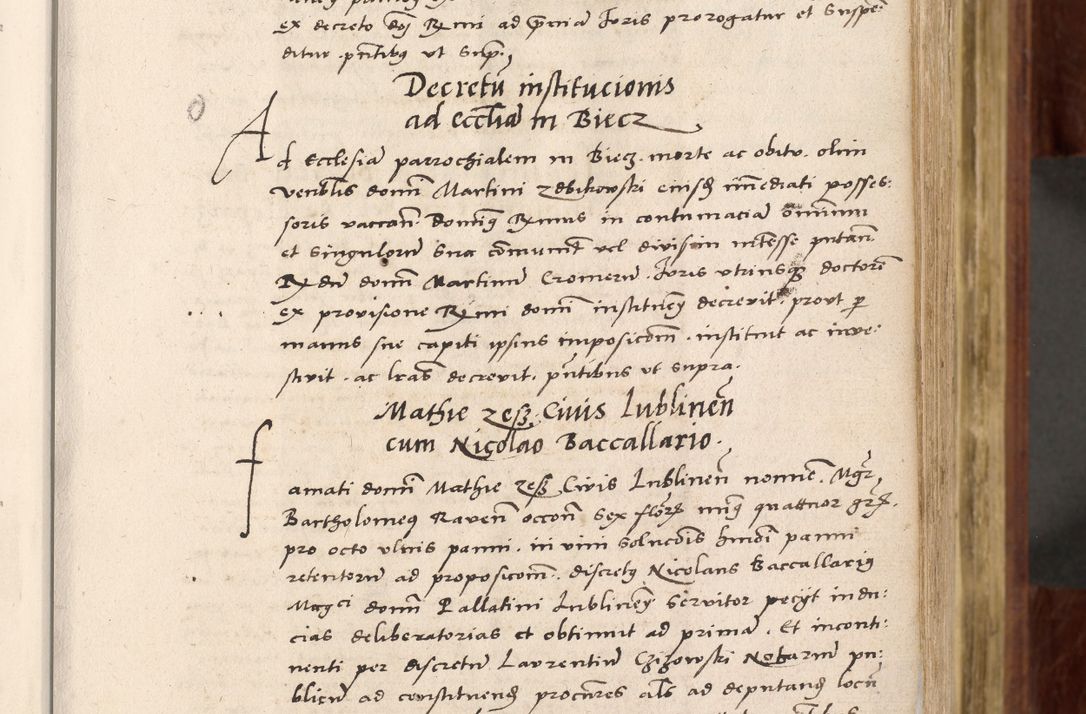 ex decreto dnj Rmi ad prima Juris prorogatur et suspe:
ditur prntibus ut supra,
Decretu institucionis
ad eccliam in Biecz
Ad Ecclesia parrochialem in Biecz. morte ac obitu. olim
venblis domi Martini zdbikowski eiusdem immediati posses:
soris vaccan. Dominus Rmus in contumacia omnium
et singuloru sua comunit vel divisim interesse putan.
Rdu domi Martinu Cromeru. Juris utriusque doctore
ex provisione Rmi domi instituen decrevit prout per
manus sue capiti ipsius imposicom. instituit ac inve:
stivit. ac lras decrevit. pntibus ut supra.
Mathie zess Civis lublinen
cum Nicolao Baccallario.
famati domi Mathie zess Civis Lublinen nomine. Mgr,
Bartholomeus Raven occon sex flor minus quattuor gr.
pro octo ulnis panni. in vim solucois panni
retentoru ad proposicom. discretus Nicolaus Baccallarius
Magci domi Pallatini Lublinen servitor pecijt indu:
cias deliberatorias et obtinuit ad prima. Et inconti:
nenti per discretu Laurentiu Czizowski Notariu pu:
blicu ad constituend procures als ad deputand locu